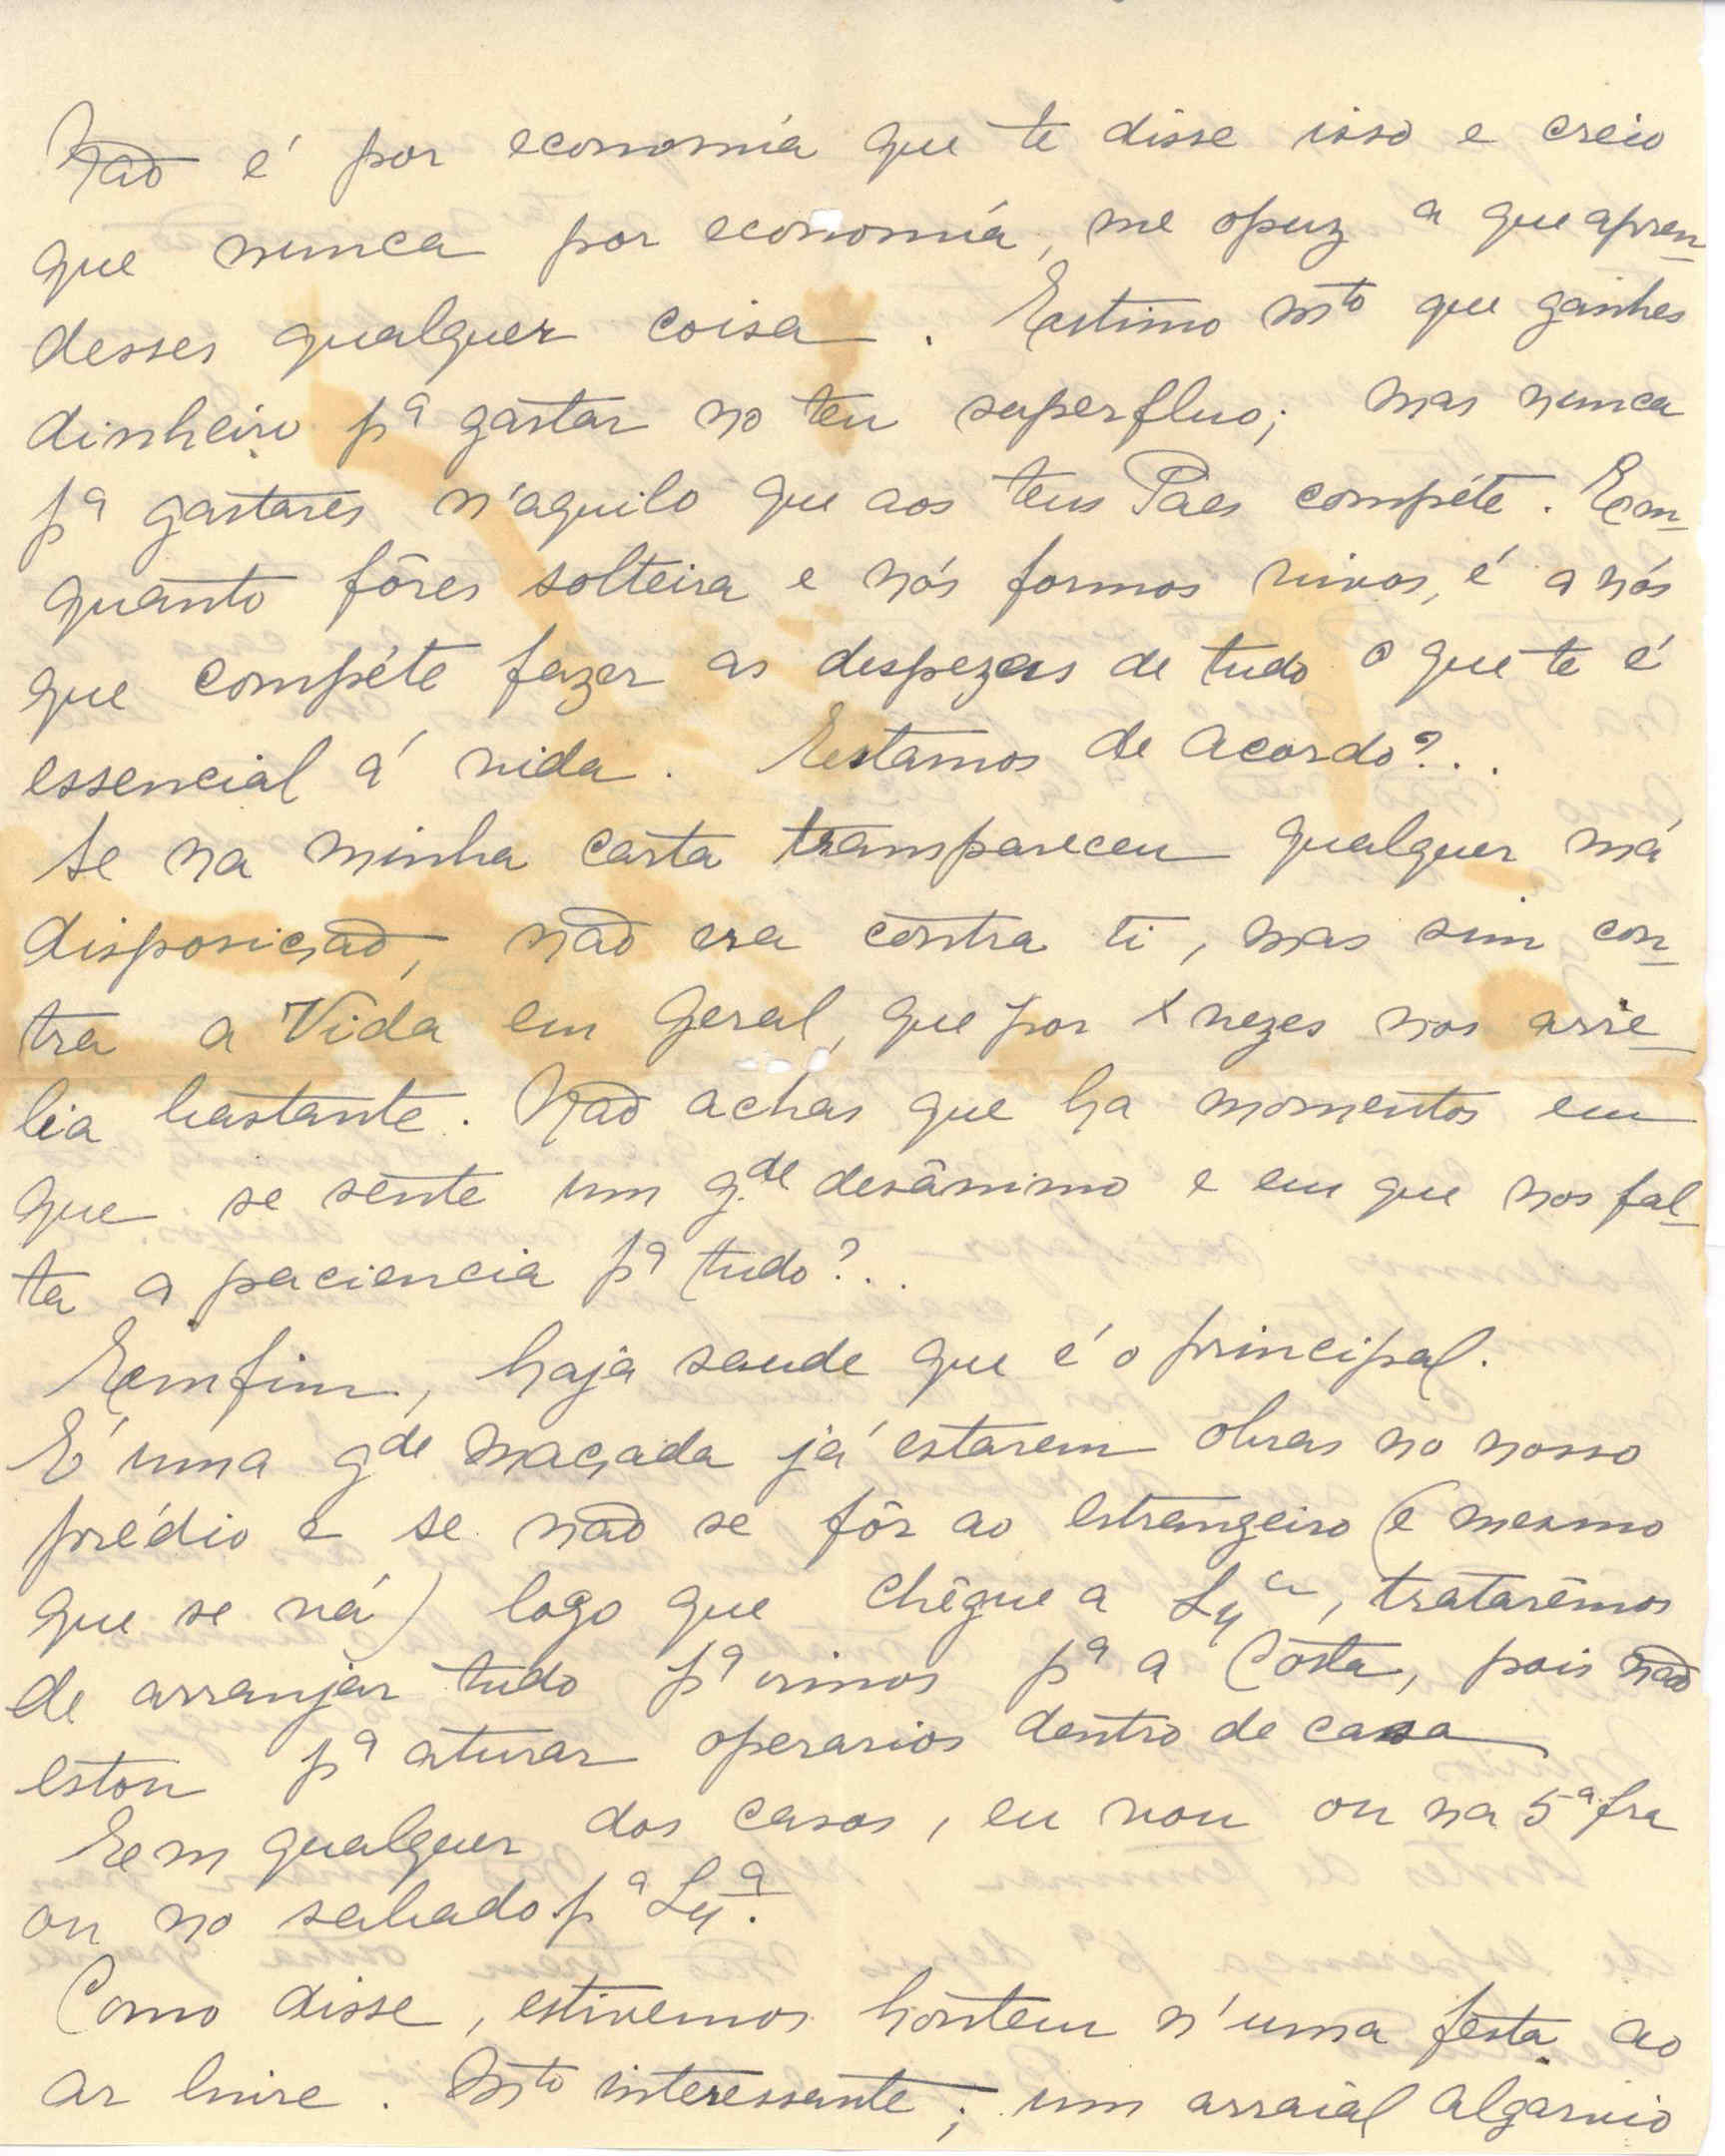 Não é por economía que te disse isso e creio
que nunca por economía, me opuz a que apren-
desses qualquer coisa. Estimo mto que ganhes
dinheiro pª gastar no teu superfluo; mas nunca
pª gastares n'aquilo que aos teus Paes compéte. Em-
quanto fôres solteira e nós formos vivos, é a nós
que compéte fazer as despezas de tudo o que te é
essencial á vida. Estamos de acordo?..
Se na minha carta transpareceu qualquer má
disposição, não era contra ti, mas sim con-
tra a Vida em geral, que por vezes nos arre-
lia bastante. Não achas que ha momentos em
que se sente um g.de desânimo e em que nos fal-
ta a paciencia pª tudo?..
Emfim, haja saude que é o principal.
É uma gde maçada já estarem obras no nosso
prédio e se não se fôr ao estrangeiro (e mesmo
que se vá) logo que chêgue a Lxª, tratarêmos
de arranjar tudo pª virmos pª a Costa, pois não
estou pª aturar operarios dentro de casa
Em qualquer dos casos, eu vou ou na 5ª fra
ou no sabado pª Lxª.
Como disse, estivemos hontem n'uma festa ao
ar livre. Mto interessante; um arraial algarvio